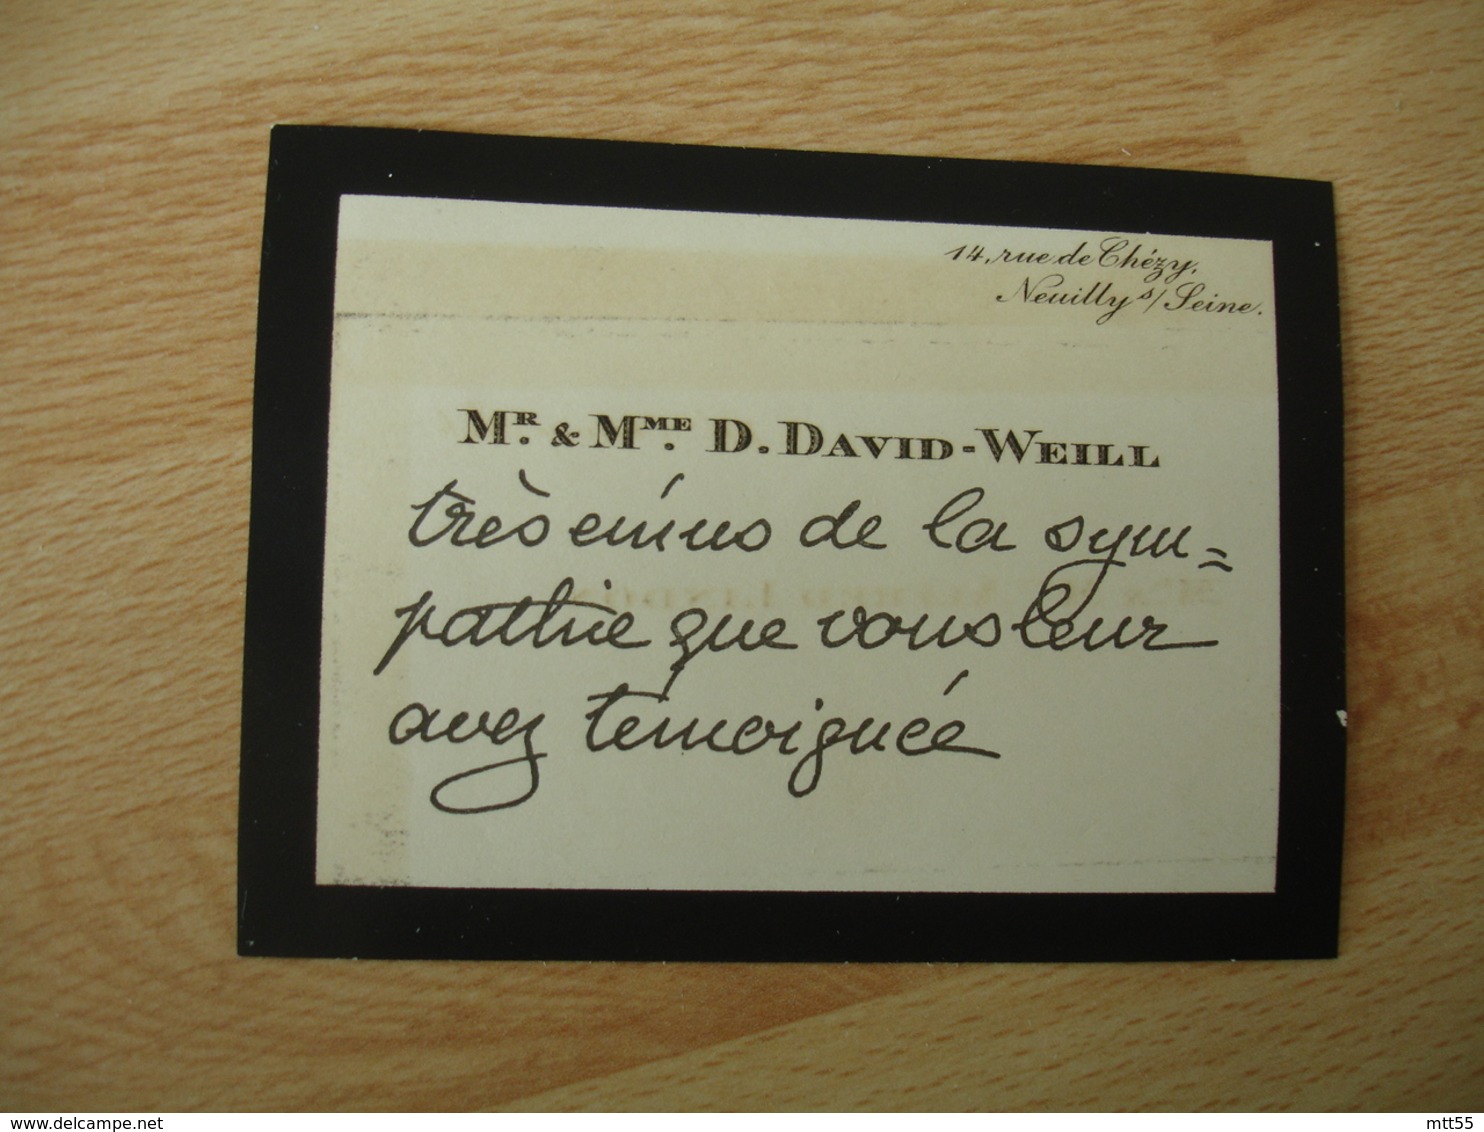 14, rue de Chézy,
Neuilly s/ Seine.
MR. & MME. D. DAVID-WEILL
très émus de la sym=
pathie que vous leur
avez témoignée
© delcampe.net
mtt55